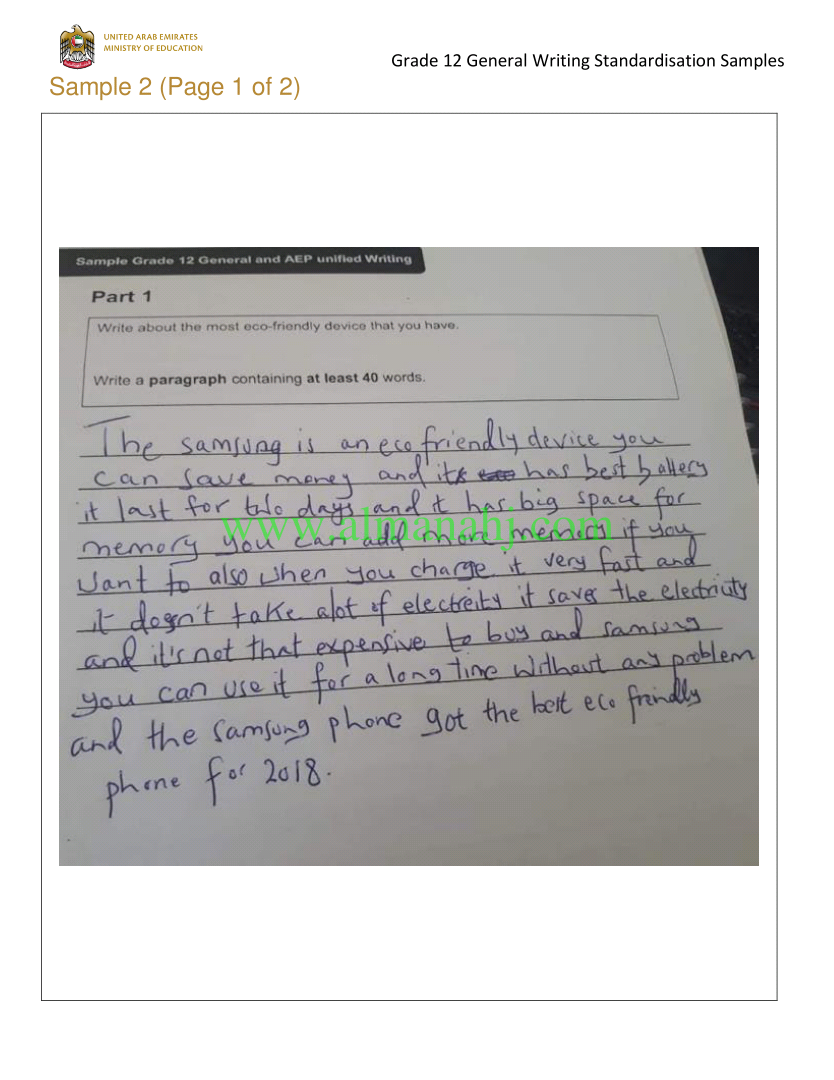 UNITED ARAB EMIRATES
MINISTRY OF EDUCATION
Grade 12 General Writing Standardisation Samples
Sample 2 (Page 1 of 2)
Sample Grade 12 General and AEP unified Writing
Part 1
Write about the most eco-friendly device that you have.
Write a paragraph containing at least 40 words.
The samsung is an eco friendly device you
can save money and it has best battery
it last for two days and it has big space for
www.almanahj.com
memory you can add more memori if you
want to also when you charge it very fast and
it dosn't take alot of electreity it saves the electricity
and it's not that expensive to buy and samsung
you can use it for a long time without any problem
and the samsung phone got the best eco freindly
phone for 2018.